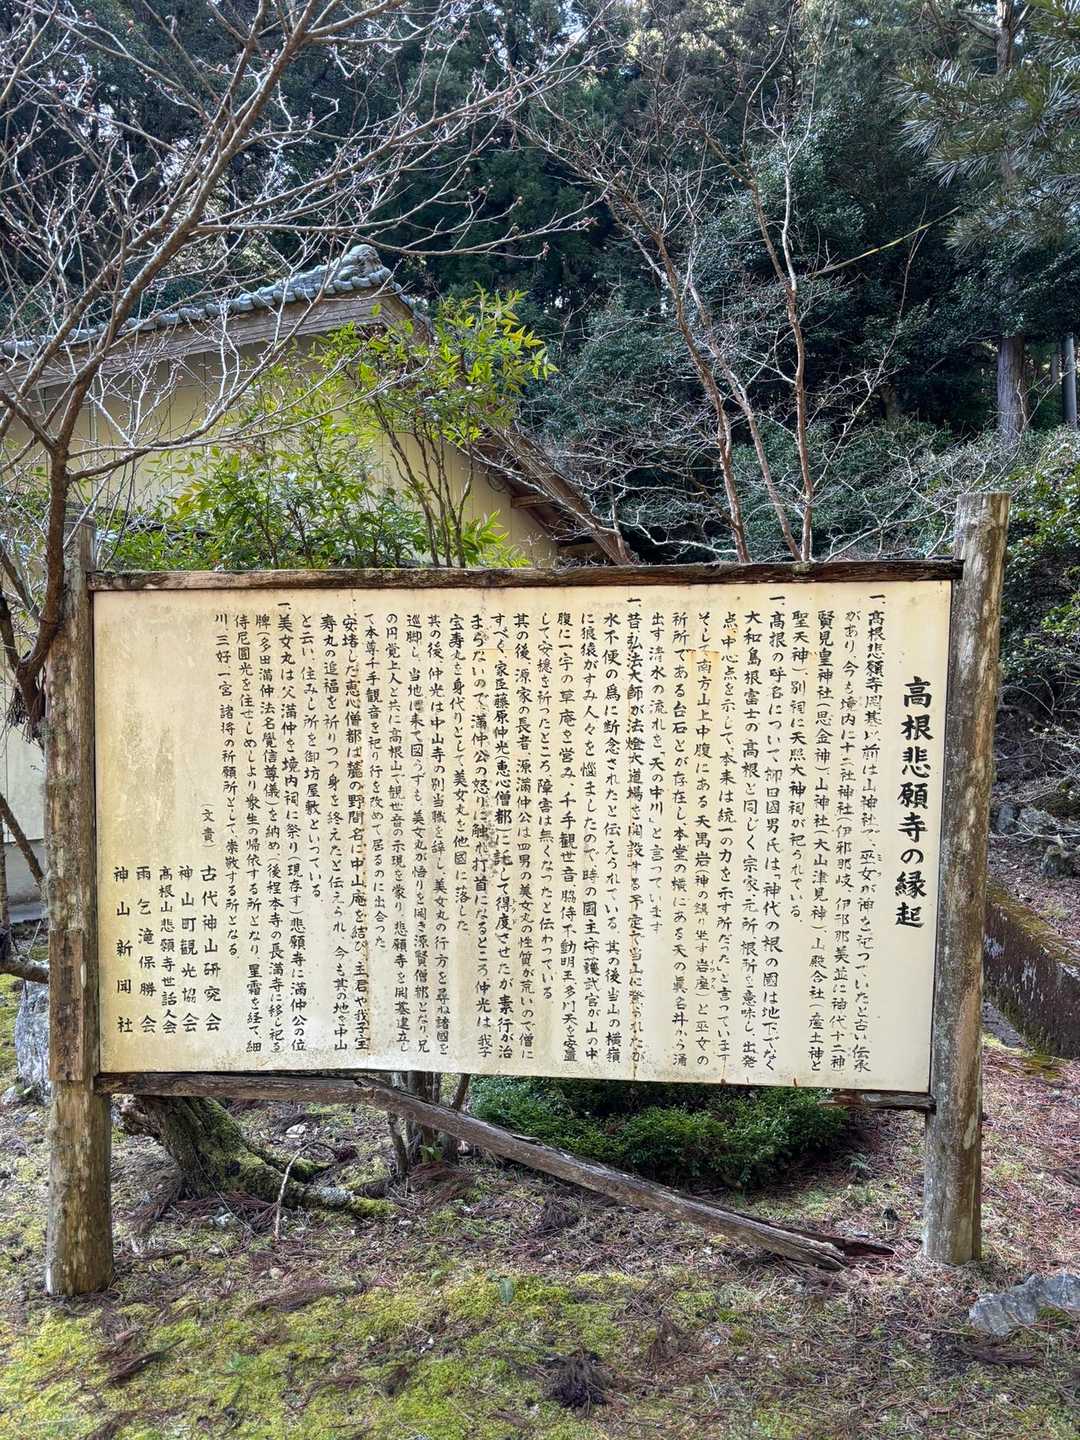 高根悲願寺の縁起
一、高根悲願寺開基以前は山神社で、巫女が神を祀っていたと古い伝承
があり、今も境内に十二社神社(伊邪那岐、伊邪那美並に神代十二神
賢見皇神社(思金神)、山神社(大山津見神)、山殿合社(産土神と
聖天神)、別祠に天照大神祠が祀られている。
一、高根の呼名について、柳田國男氏は「神代の根の國は地下でなく
大和島根富士の高根と同じく宗家、元所根所を意味し、出発
点中心点を示して、本来は統一の力を示す所だった」と言っています
そして南方山上中腹にある天岩(神の鎮り坐す岩座)と巫女の
祈所である台石とが存在し、本堂の横にある天の眞名井から涌
出す清水の流れを「天の中川」と言っています
一、昔、弘法大師が法燈大道場を開設する予定で当山に登られたが
水不便の為に断念されたと伝えられている。其の後、当山の横嶺
に狼猿がすみ人々を悩ましたので、時の國主守護武官が山の中
腹に一宇の草庵を営み、千手観世音、脇侍不動明王多門天を安置
して安穏を祈ったところ障害は無くなったと伝わっている
其の後、源家の長者、源満仲公は四男の美女丸の性質が荒いので僧に
すべく、家臣藤原仲光、恵心僧都に託して得度させたが素行が治
まらないので、満仲公の怒りに触れ打首になるところ仲光は我子
宝寿丸を身代りとして、美女丸を他國に落した
其の後、仲光は中山寺の別当職を辞し、美女丸の行方を尋ね諸國を
巡脚し、当地に来て図らずも、美女丸が悟りを開き源賢僧都となり、兄
の円覚上人と共に高根山で観世音の示現を蒙り、悲願寺を開基建立し
て本尊千手観音を祀り行を改めて居るのに出合った
安堵した恵心僧都は麓の野間名に中山庵を結び、主君や我子宝
寿丸の追福を祈りつつ身を終えたと伝えられ、今も其の地を中山
と云い、住みし所を御坊屋敷といっている
一、美女丸は父満仲を境内祠に祭り(現存す)悲願寺に満仲公の位
牌(多田満仲法名覺信尊儀)を納め(後裡本寺の長満寺に移し祀る)
侍尼圓光を住せしめしより衆生の帰依する所となり、星霜を経て、細
川三好一宮諸将の祈願所として、崇敬する所となる
(文責)
古代神山研究会
神山町観光協会
高根山悲願寺世話人会
雨乞滝保勝会
神山新聞社